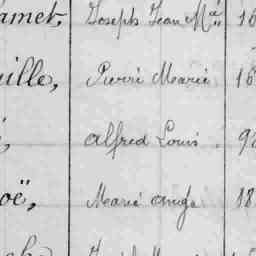 amet, Joseph Jean M.ie 16
uille, Pierre Marie 16
, Alfred Louis . 9
oë, Marie ange 18